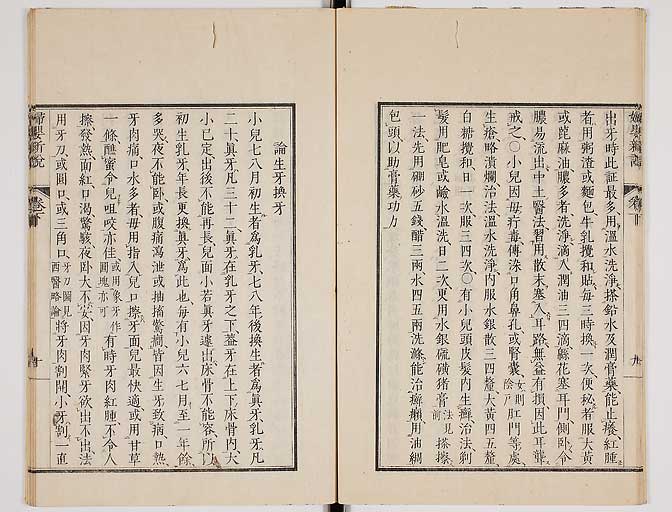 出牙時此証最多、用溫水洗淨、搽鉛水及潤膏藥能止癢、紅腫
者用粥渣或麵包牛乳攪和貼、每三時換一次、便秘者服大黃
或蓖麻油、膿多者洗淨滴入潤油三四滴、緜花塞耳門、側臥令
膿易流出、中土醫法習用散末塞入耳路、無益有損、因此耳聾
戒之、〇小兒因毋疔毒傳染口角鼻孔或腎囊、女則陰戶肛門等處、
生瘡略潰爛、治法溫水洗淨、內服水銀散三四釐、大黃四五釐、
白糖攪和、日一次、服三四次、〇有小兒頭皮髮內生癬、治法剃
髮、用肥皂或鹼水溫洗、日二次、更用水銀硫磺猪膏法見前搽擦、
一法先用硼砂五錢、醋三兩、水四五兩洗滌、能治癬癩、用油綢
包頭以助膏藥功力、
九
論生牙換牙
小兒七八月初生者爲乳牙、七八年後換生者爲眞牙、乳牙凡
二十、眞牙凡三十二、眞牙在乳牙之下、葢牙在上下牀骨內、大
小已定、出後不能再長、兒面小、若眞牙遽出、牀骨不能容、所以
初生乳牙、年長更換眞牙爲此也、每有小兒六七月至一年餘、
多哭夜不能臥、或腹痛瀉泄、或抽搐驚癎、皆因生牙致病、口熱
牙肉痛、口水多者、毋用指入兒口擦牙面、兒最快適、或用甘草
一條醮蜜令兒咀咬亦佳、或用象牙作圓塊亦可有時牙肉紅腫、不令人
擦、發熱面紅、口渴驚駭、夜臥大不安、因牙肉緊、牙欲出不出、法
用牙刀或圓口或三角口、牙刀圖見西醫略論將牙肉割開、小牙割一直
婦嬰新說
卷二
十